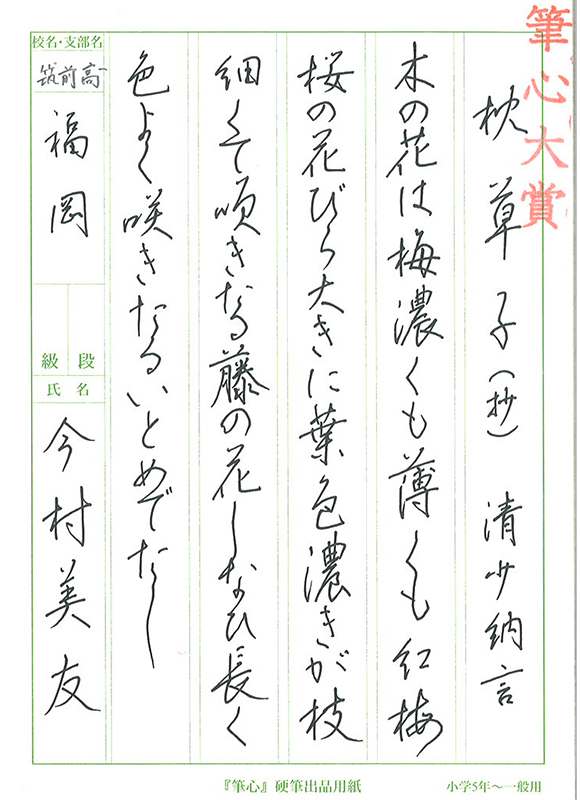 筆心大賞
枕草子(抄) 清少納言
木の花は梅濃くも薄くも紅梅
桜の花びら大きに葉色濃きが枝
細くて咲きたる藤の花しなひ長く
色よく咲きたるいとめでたし
校名・支部名
筑前高
福岡
段
級
氏名
今村美友
『筆心』硬筆出品用紙
小学5年〜一般用